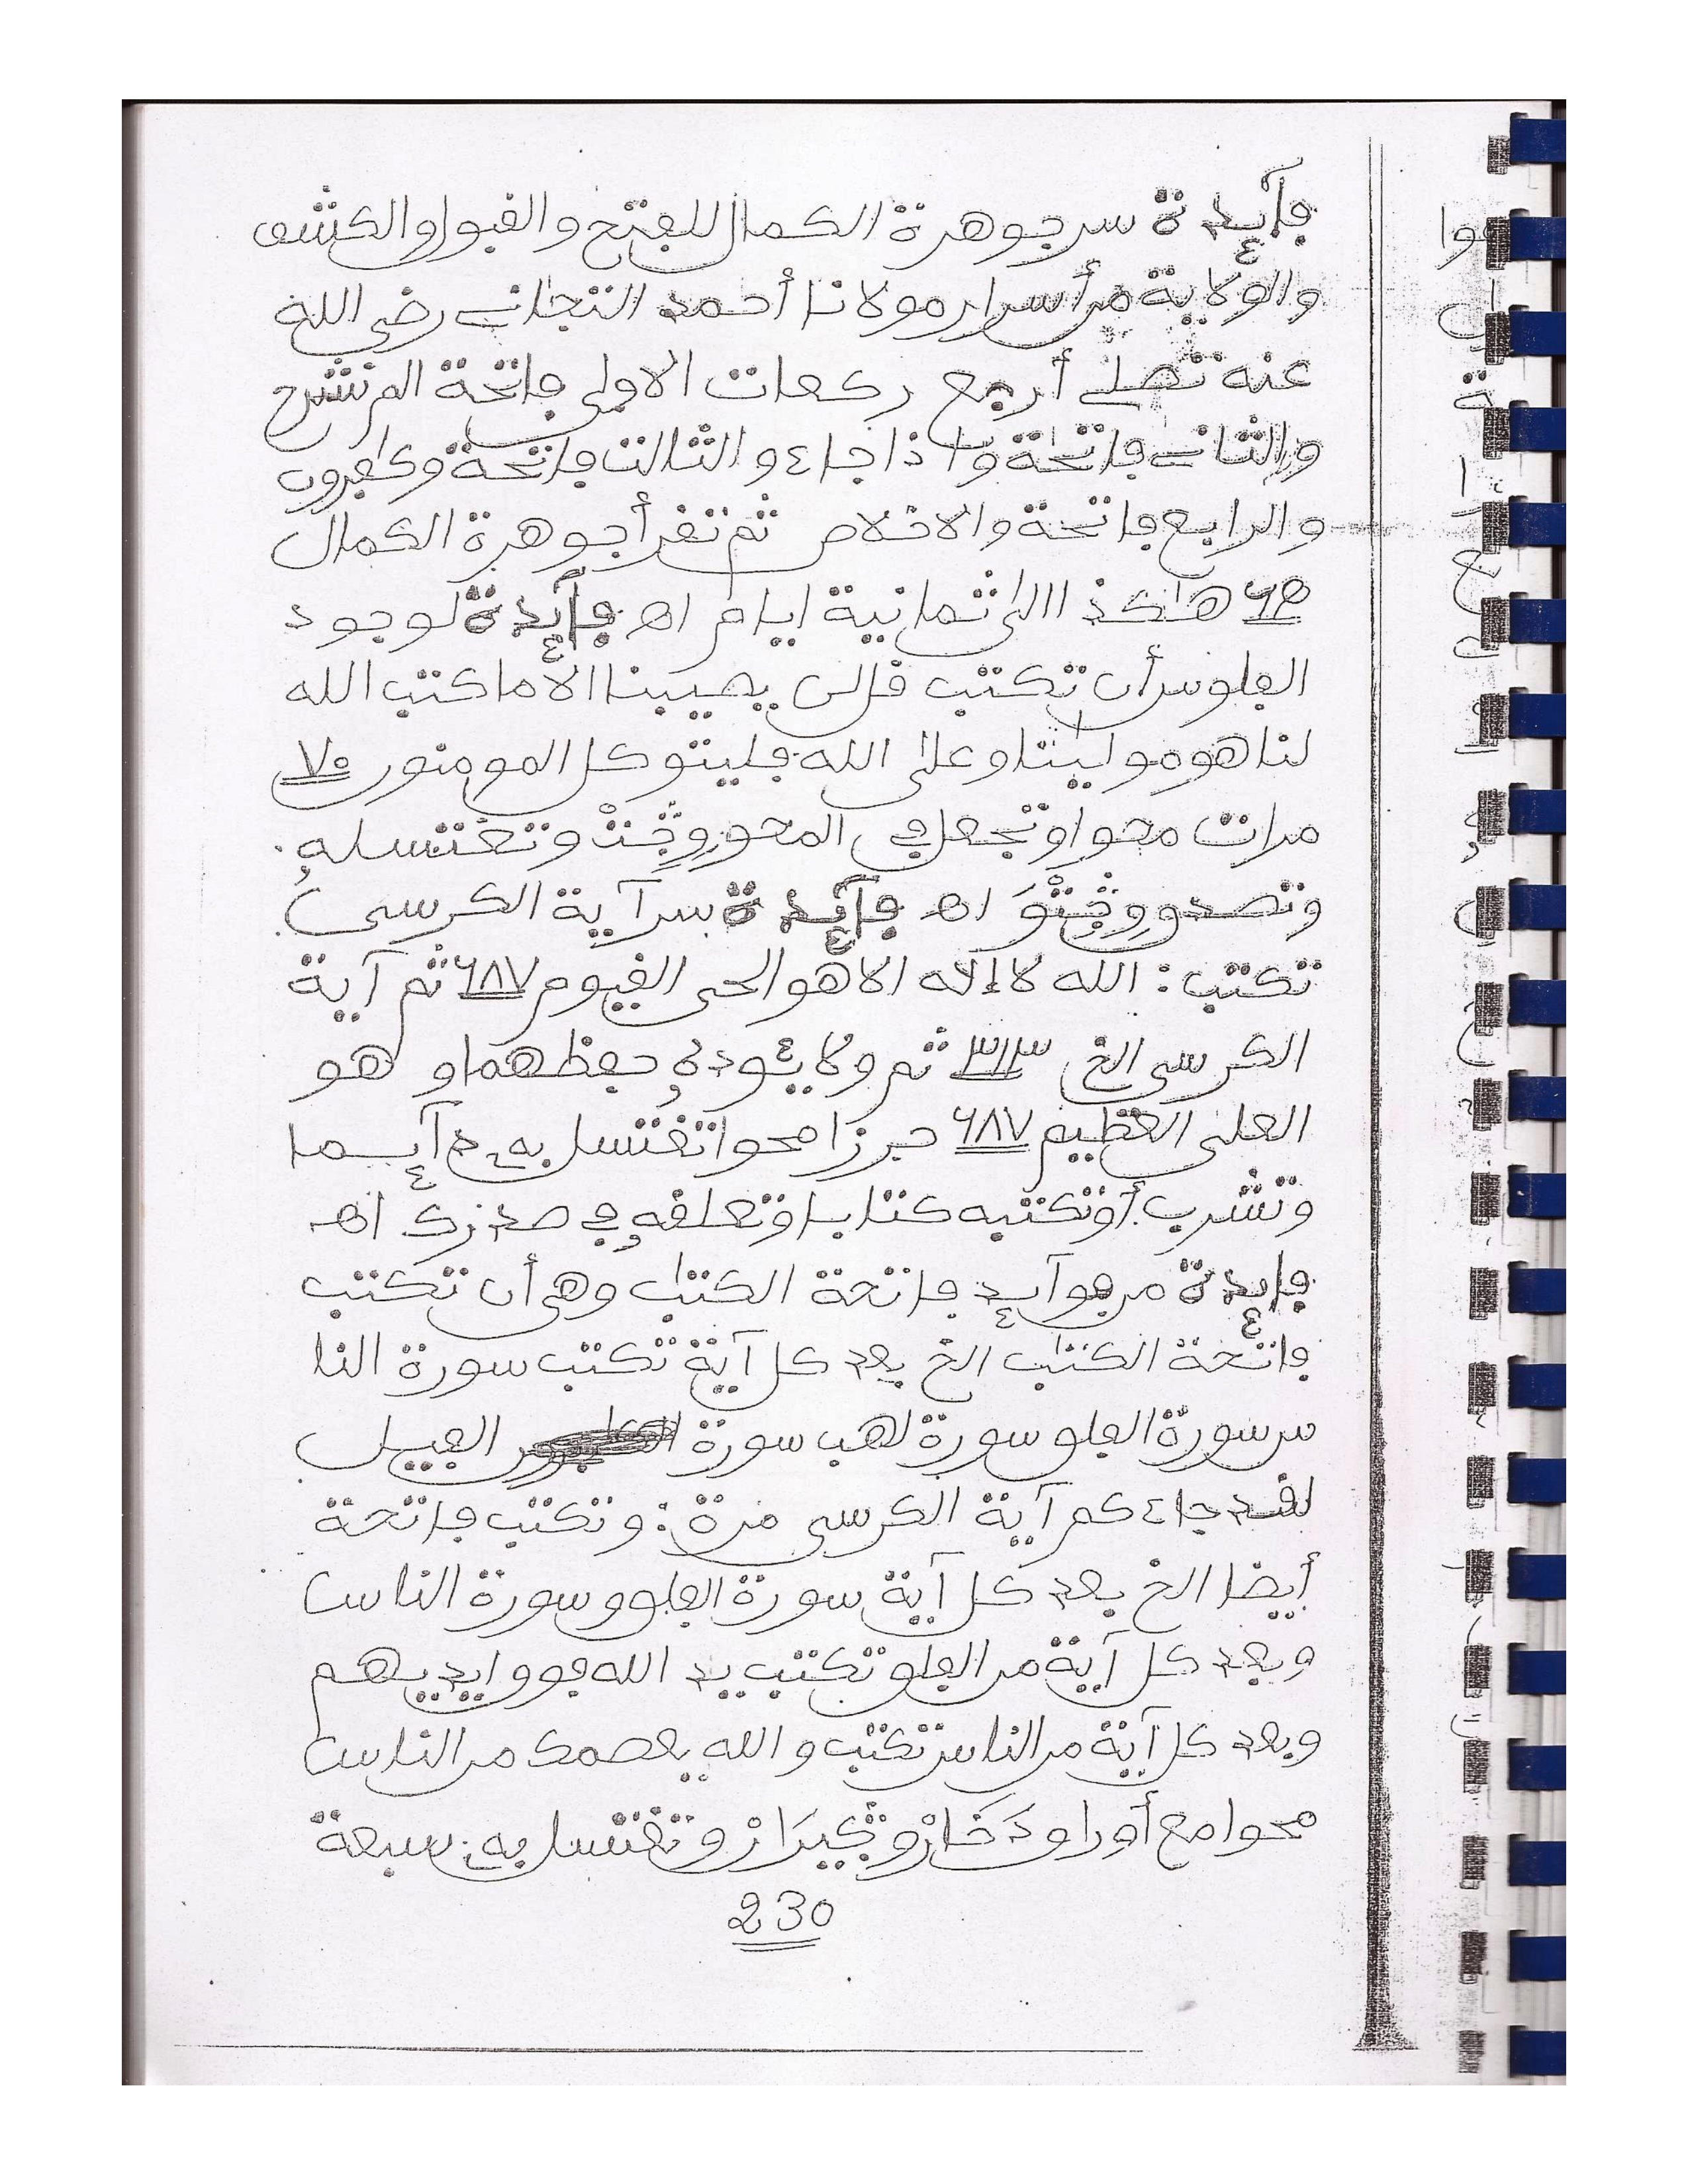 فآئدة سر جوهرة الكمال للفتح والقبول والكشف
والولاية من أسرار مولانا أحمد التجاني رضي الله
عنه تصلي أربع ركعات الاولى فاتحة الم نشرح
والثاني فاتحة واذا جاء والثالث فاتحة وكافرون
والرابع فاتحة والاخلاص ثم تقرأ جوهرة الكمال
هاكذا الى ثمانية ايام اهـ فآئدة لوجود
الفلوس أن تكتب قل لن يصيبنا الا ما كتب الله
لنا هو مولينا وعلى الله فليتوكل المومنون ٧٠
مرات محوا وتجعل في المحو وتغتسل به
وتصدق اهـ فآئدة سر آية الكرسى
تكتب: الله لا إلاه الا هو الحي القيوم ٦٨٧ ثم آية
الكرسى الخ ٣١٣ ثم ولا يئوده حفظهما وهو
العلى العظيم ٦٨٧ حرزا محوا تغتسل به دآئما
وتشرب أو تكتبه كتابا وتعلقه في صدرك اهـ
فائدة من فوآئد فاتحة الكتاب وهي أن تكتب
فاتحة الكتاب الخ بعد كل آية تكتب سورة النا
س سورة الفلق سورة لهب سورة الفيل
لقد جاءكم آية الكرسى مرة: وتكتب فاتحة
أيضا الخ بعد كل آية سورة الفلق وسورة الناس
وبعد كل آية من الفلق تكتب يد الله فوق ايديهم
وبعد كل آية من الناس تكتب والله يعصمك من الناس
محوا مع أوراق وتغتسل به سبعة
230